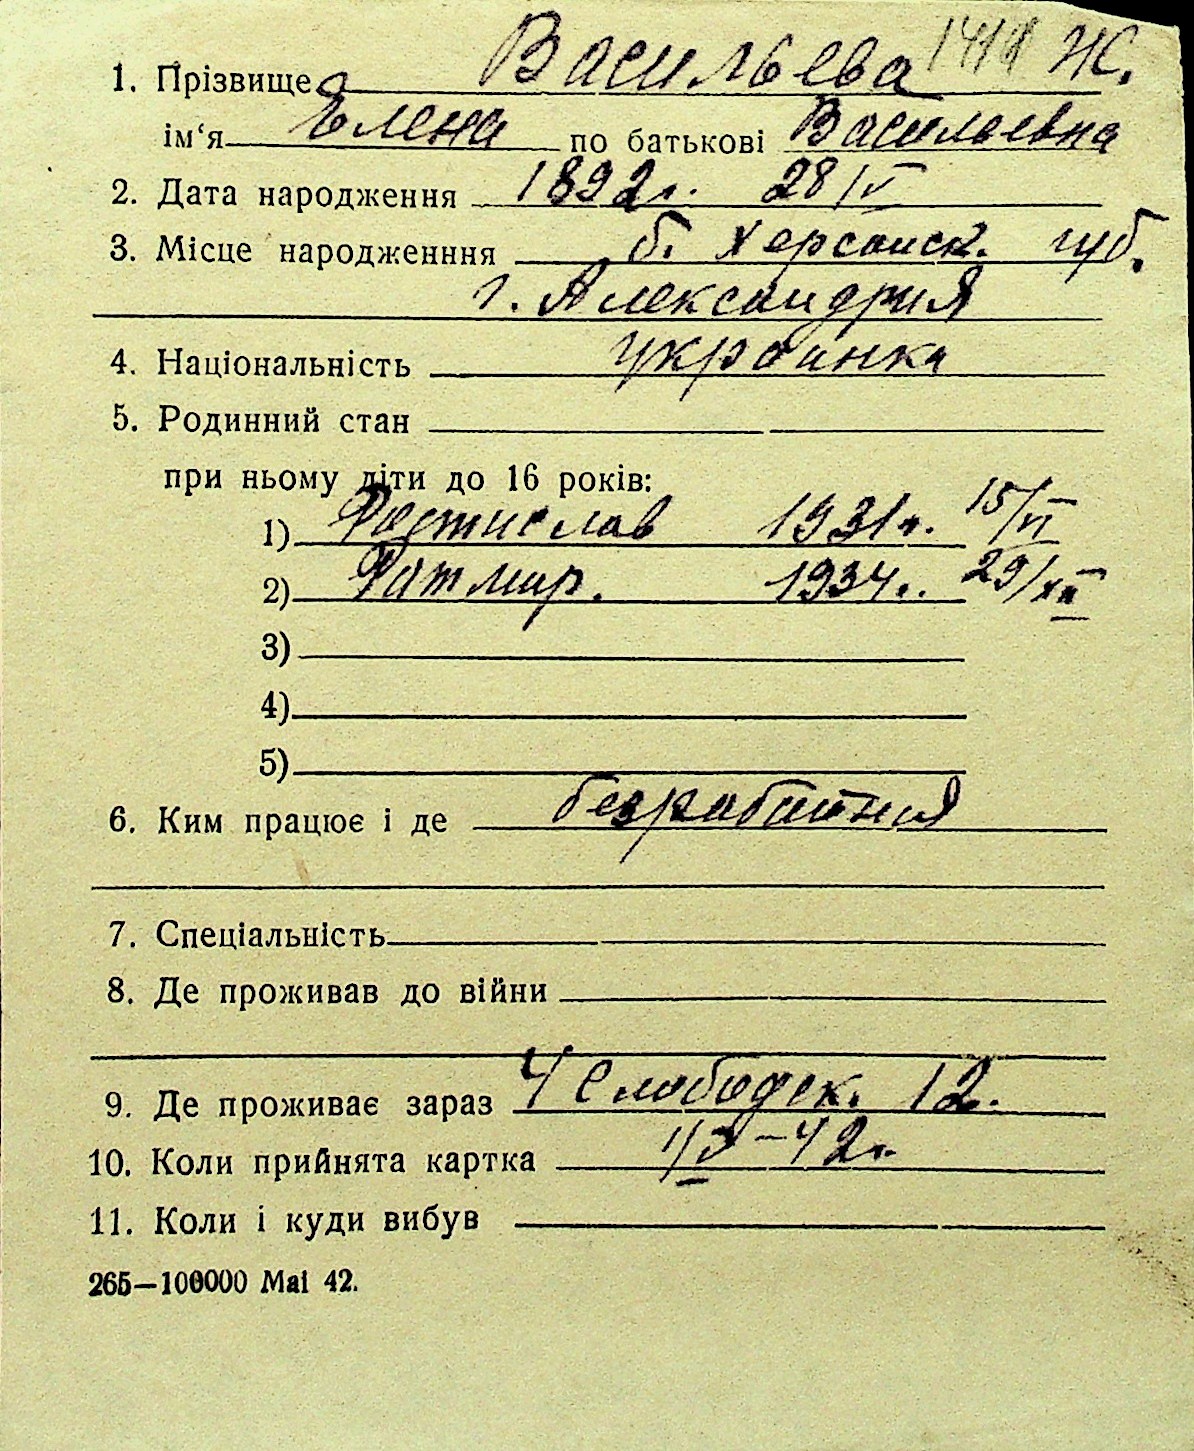 1. Прізвище Васильева Ж.
ім‘я Елена по батькові Васильевна
2. Дата народження 1892г. 28/V
3. Місце народженння б. Херсонск. губ.
г. Александрия
4. Національність украинка
5. Родинний стан
при ньому діти до 16 років:
1) Ростислав 1931г. 15/VI
2) Ратмир. 1934г. 29/XII
3)
4)
5)
6. Ким працює і де безработная
7. Спеціальність
8. Де проживав до війни
9. Де проживає зараз Ч Слободск. 12.
10. Коли прийнята картка –42г.
11. Коли і куди вибув
265—100000 Mai 42.